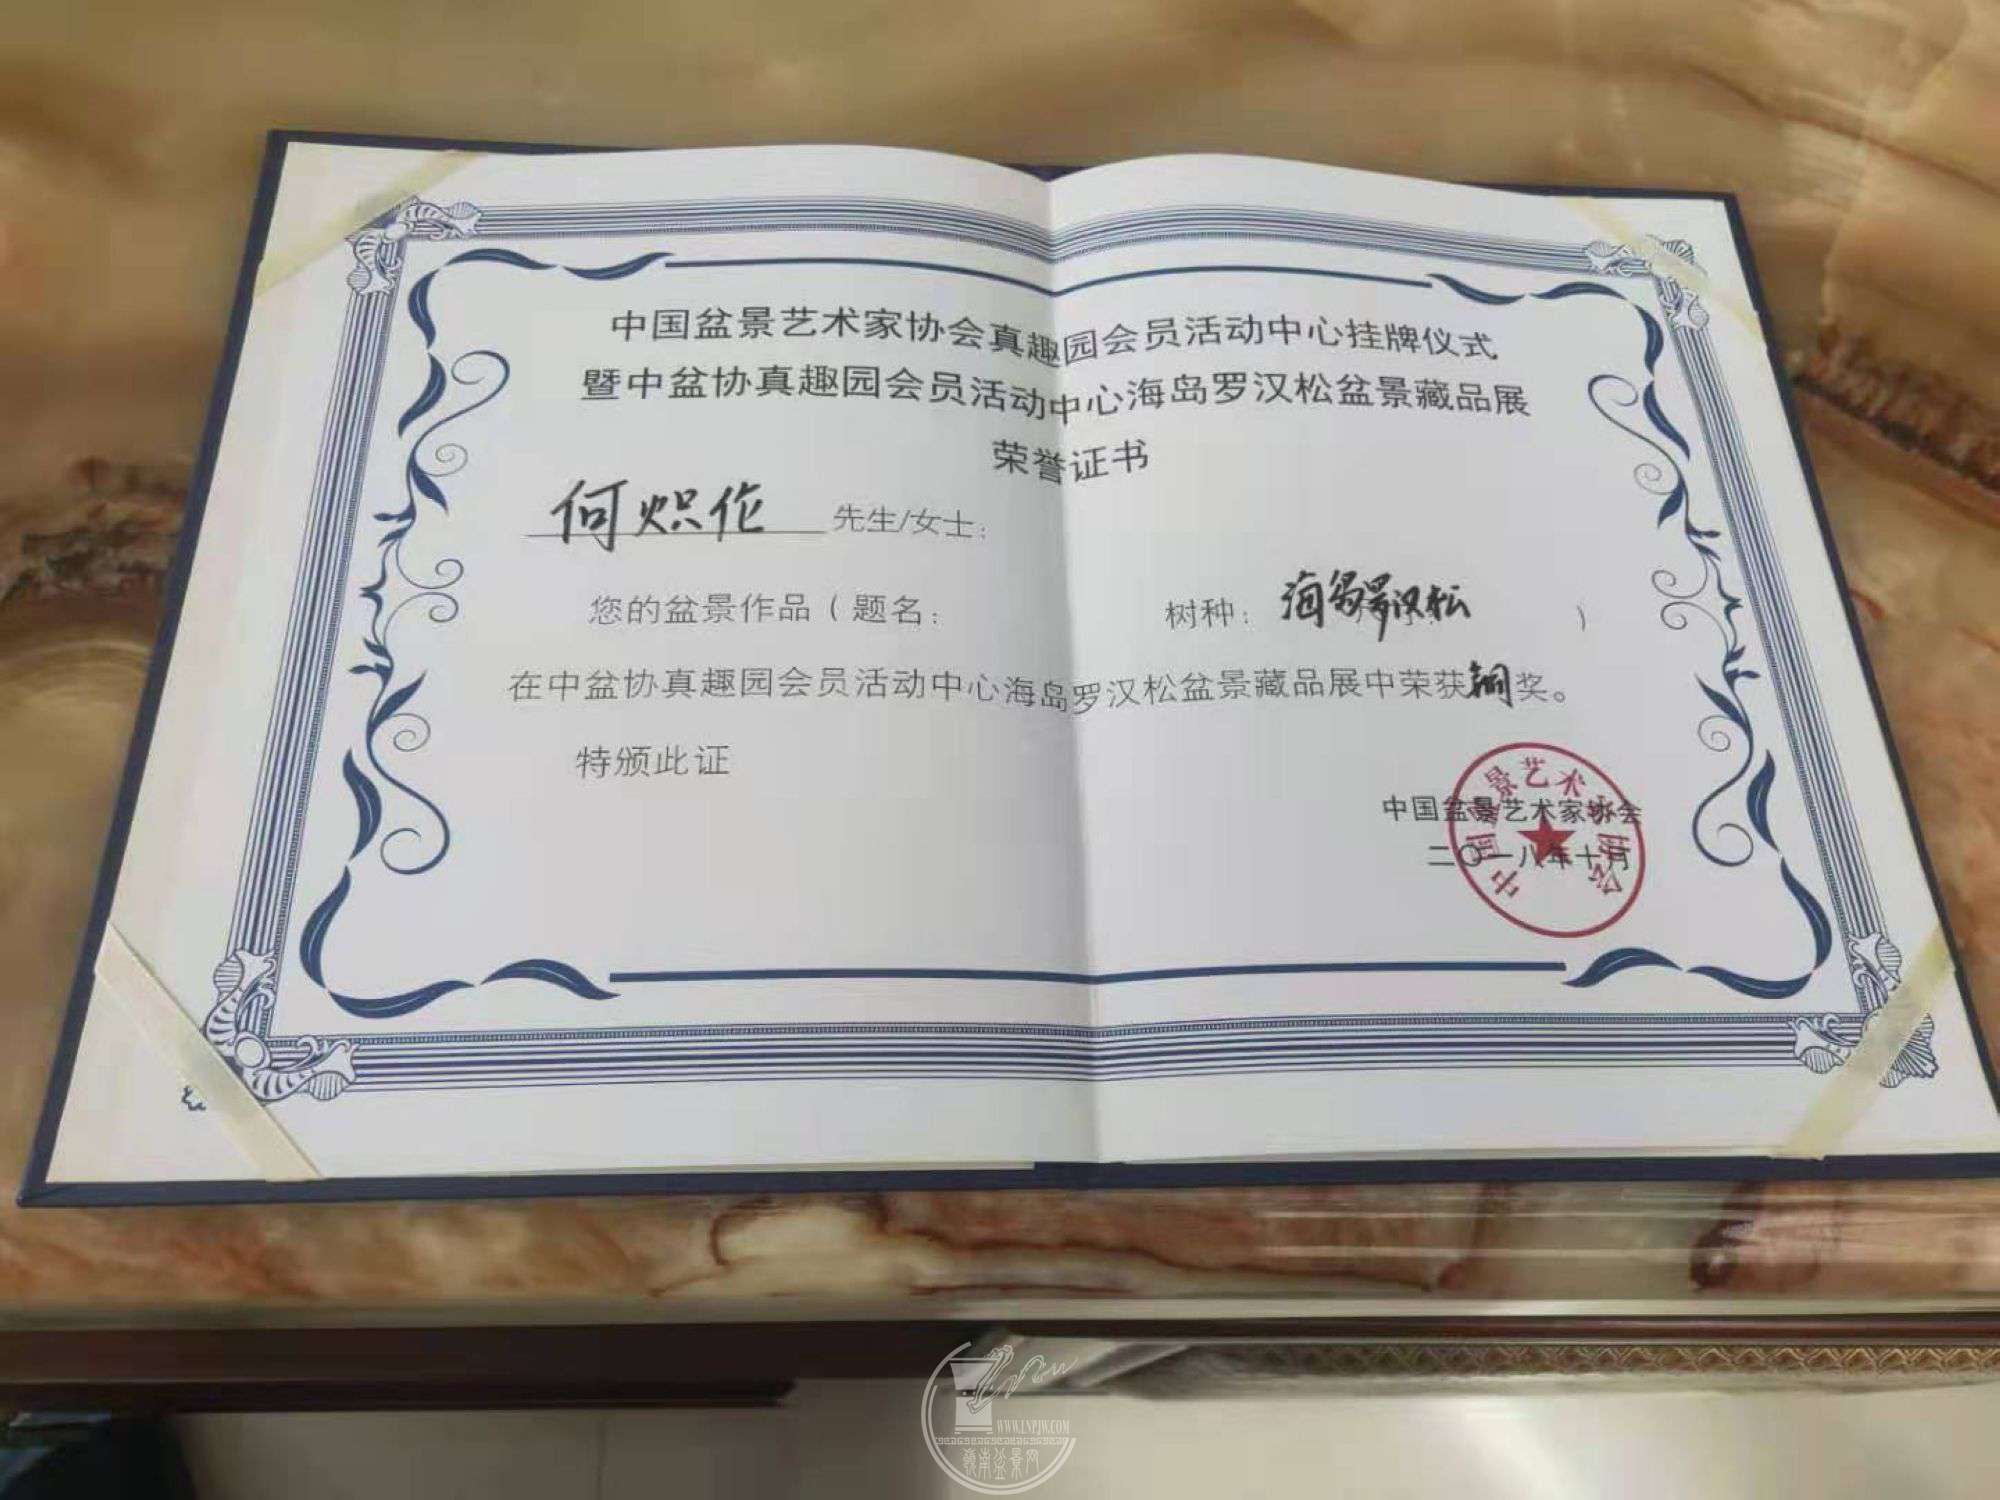 中国盆景艺术家协会真趣园会员活动中心挂牌仪式
暨中盆协真趣园会员活动中心海岛罗汉松盆景藏品展
荣誉证书
何炽伦 先生/女士：
您的盆景作品（题名： 树种：海岛罗汉松 ）
在中盆协真趣园会员活动中心海岛罗汉松盆景藏品展中荣获铜奖。
特颁此证
中国盆景艺术家协会
二〇一八年十月
中国盆景艺术家协会
WWW.LNPJW.COM
岭南盆景网